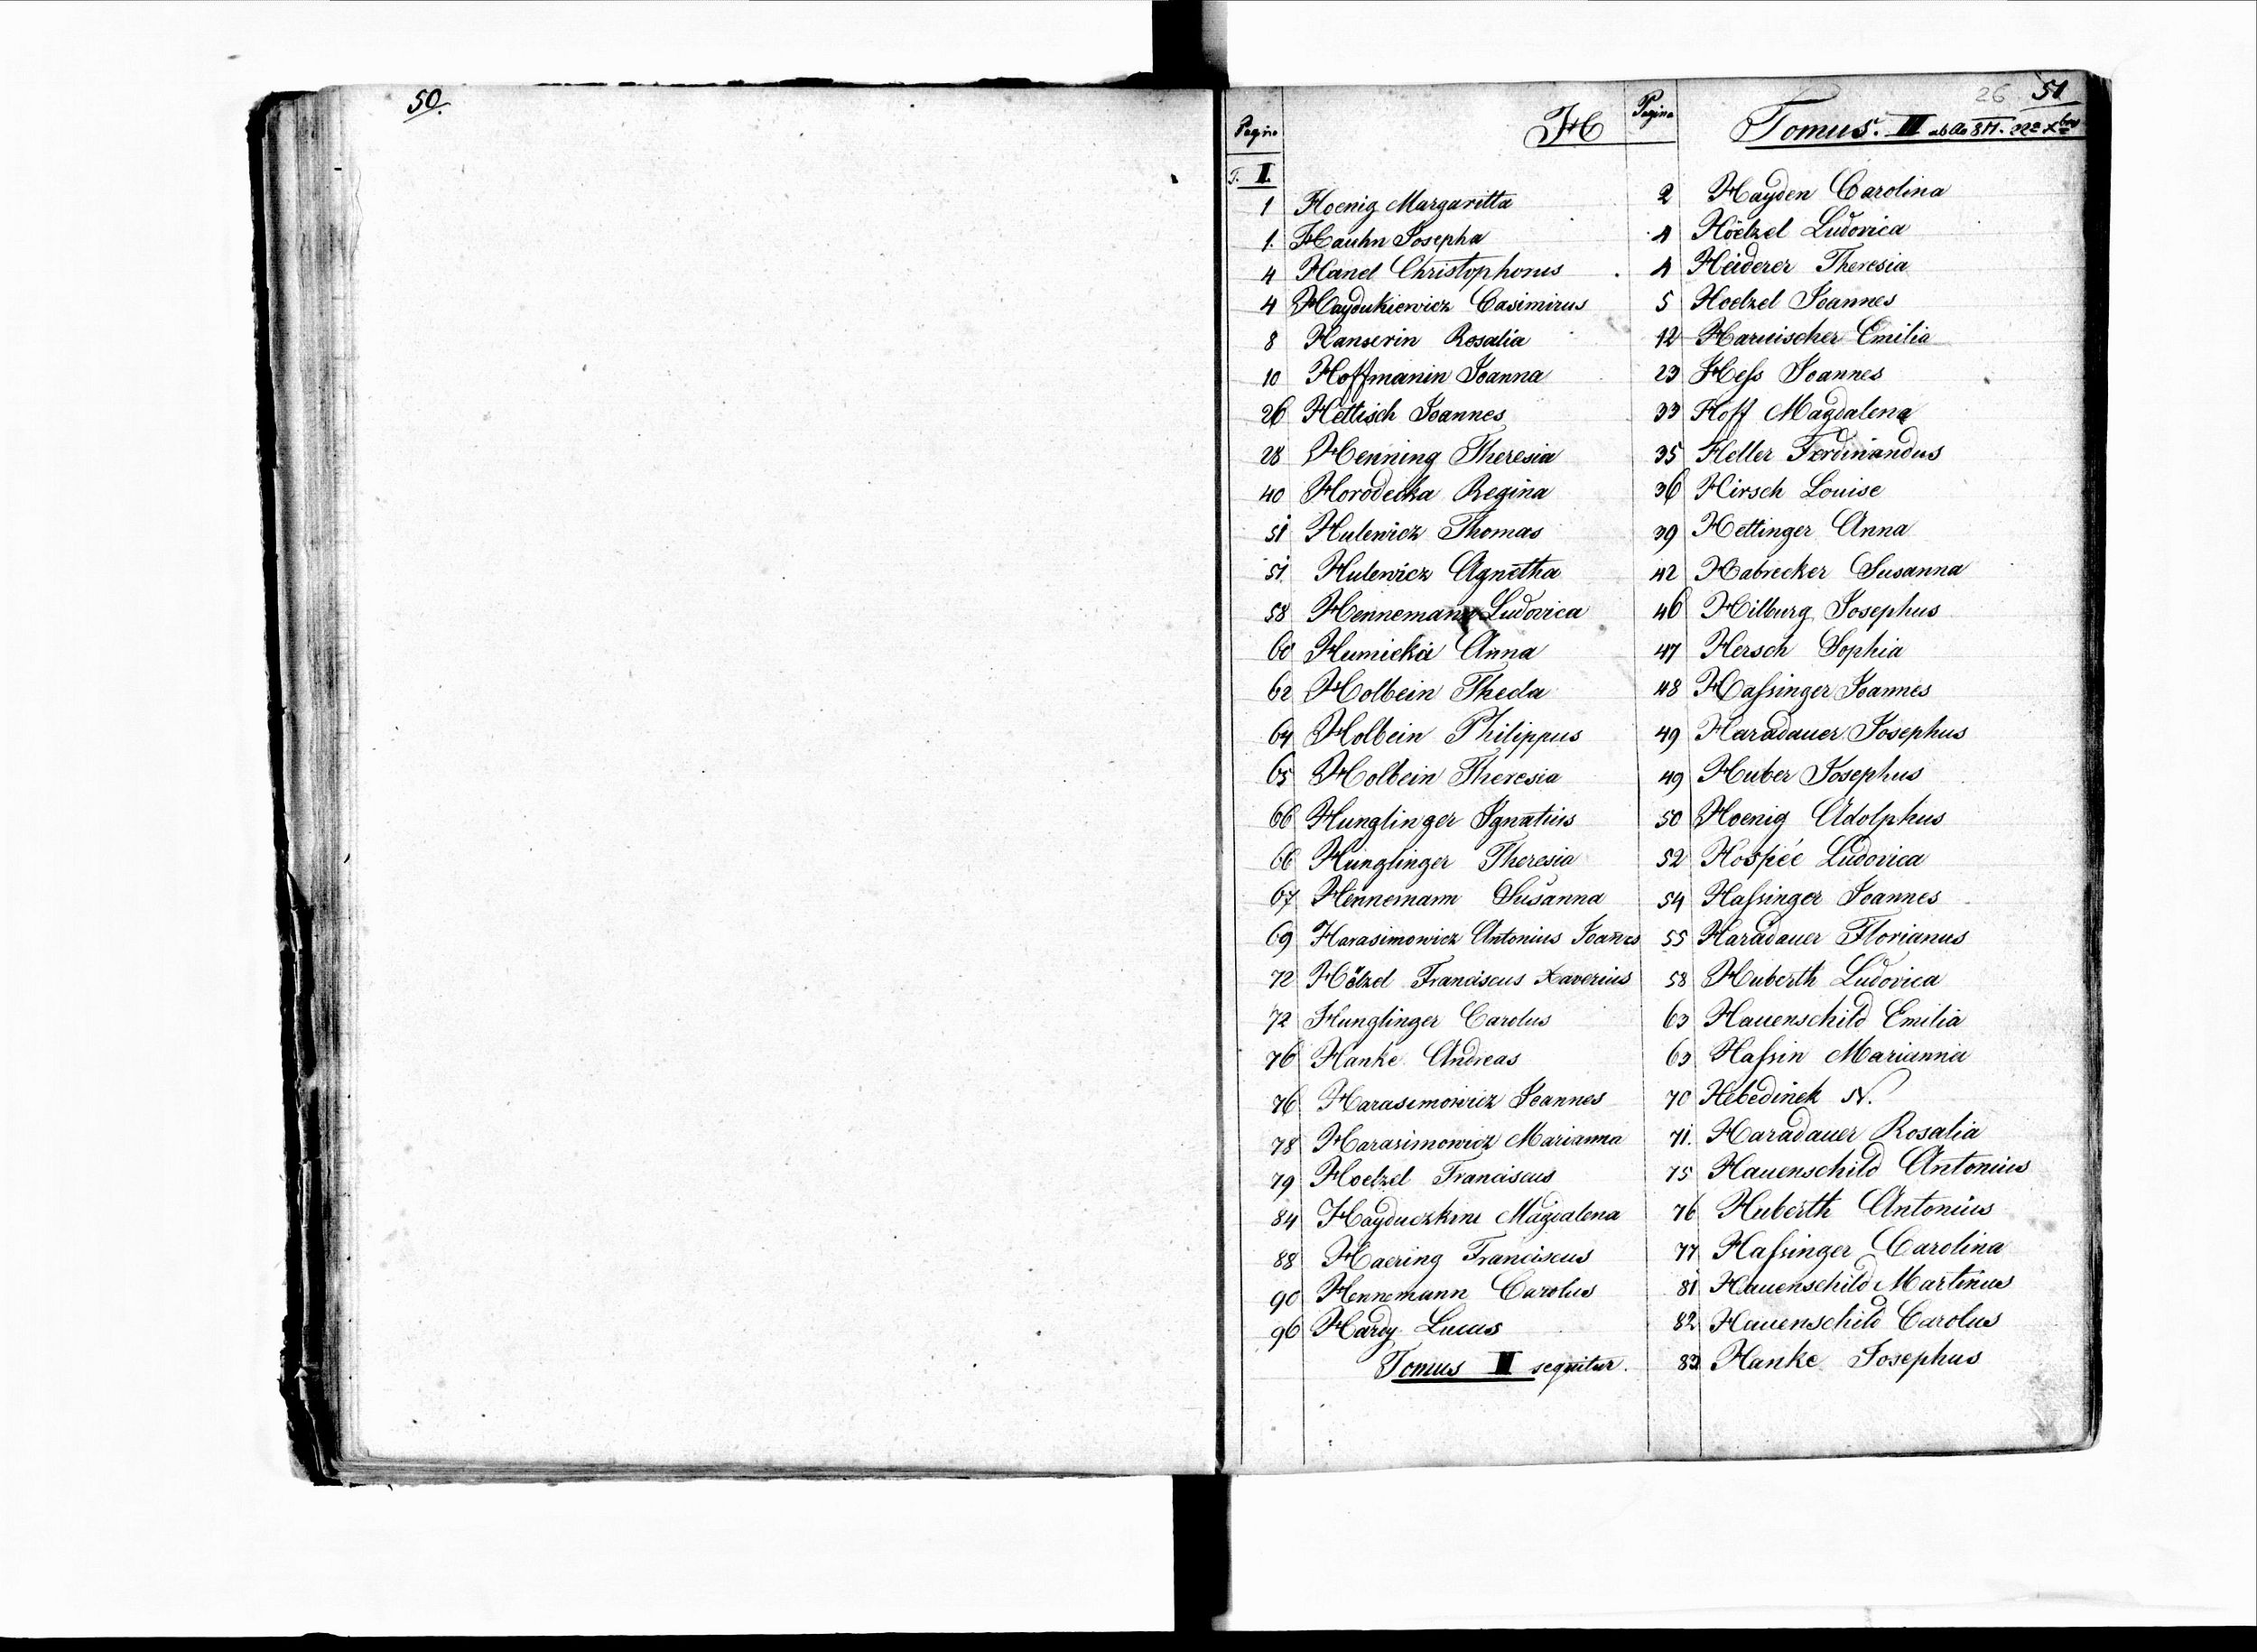 50.
26 51
Pagina H
T. I.
1 Hoenig Margaritta
1. Hauhn Josepha
4 Hanel Christophorus
4 Haydukiewicz Casimirus
8 Hanserin Rosalia
10 Hoffmanin Joanna
26 Hettisch Joannes
28 Henning Theresia
40 Horodecka Regina
51 Hulewicz Thomas
51. Hulewicz Agnetha
58 Hennemann Ludovica
60 Humicka Anna
62 Holbein Thecla
64 Holbein Philippus
65 Holbein Theresia
66 Hunglinger Ignatius
66 Hunglinger Theresia
67 Hennemann Susanna
69 Harasimowicz Antonius Joañes
72 Hölzel Franciscus Xaverius
72 Hunglinger Carolus
76 Hanke Andreas
76 Harasimowicz Joannes
78 Harasimowicz Marianna
79 Hoelzel Franciscus
84 Hayduczkine Magdalena
88 Haering Franciscus
90 Hennemann Carolus
96 Hardy Lucas
Tomus II sequitur.
Pagina Tomus II
2 Hayden Carolina
4 Höelzel Ludovica
4 Heiderer Theresia
5 Hoelzel Joannes
12 Harnischer Emilia
23 Heſs Joannes
33 Hoff Magdalena
35 Heller Ferdinandus
36 Hirsch Louise
39 Hettinger Anna
42 Habrecker Susanna
46 Hilburg Josephus
47 Hersch Sophia
48 Haſsinger Joannes
49 Haradauer Josephus
49 Huber Josephus
50 Hoenig Adolphus
52 Hospée Ludovica
54 Haſsinger Joannes
55 Haradauer Florianus
58 Huberth Ludovica
63 Hauenschild Emilia
63 Haſsin Marianna
70 Hebedinek N.
71. Haradauer Rosalia
75 Hauenschild Antonius
76 Huberth Antonius
77 Haſsinger Carolina
81 Hauenschild Martinus
82 Hauenschild Carolus
83 Hanke Josephus